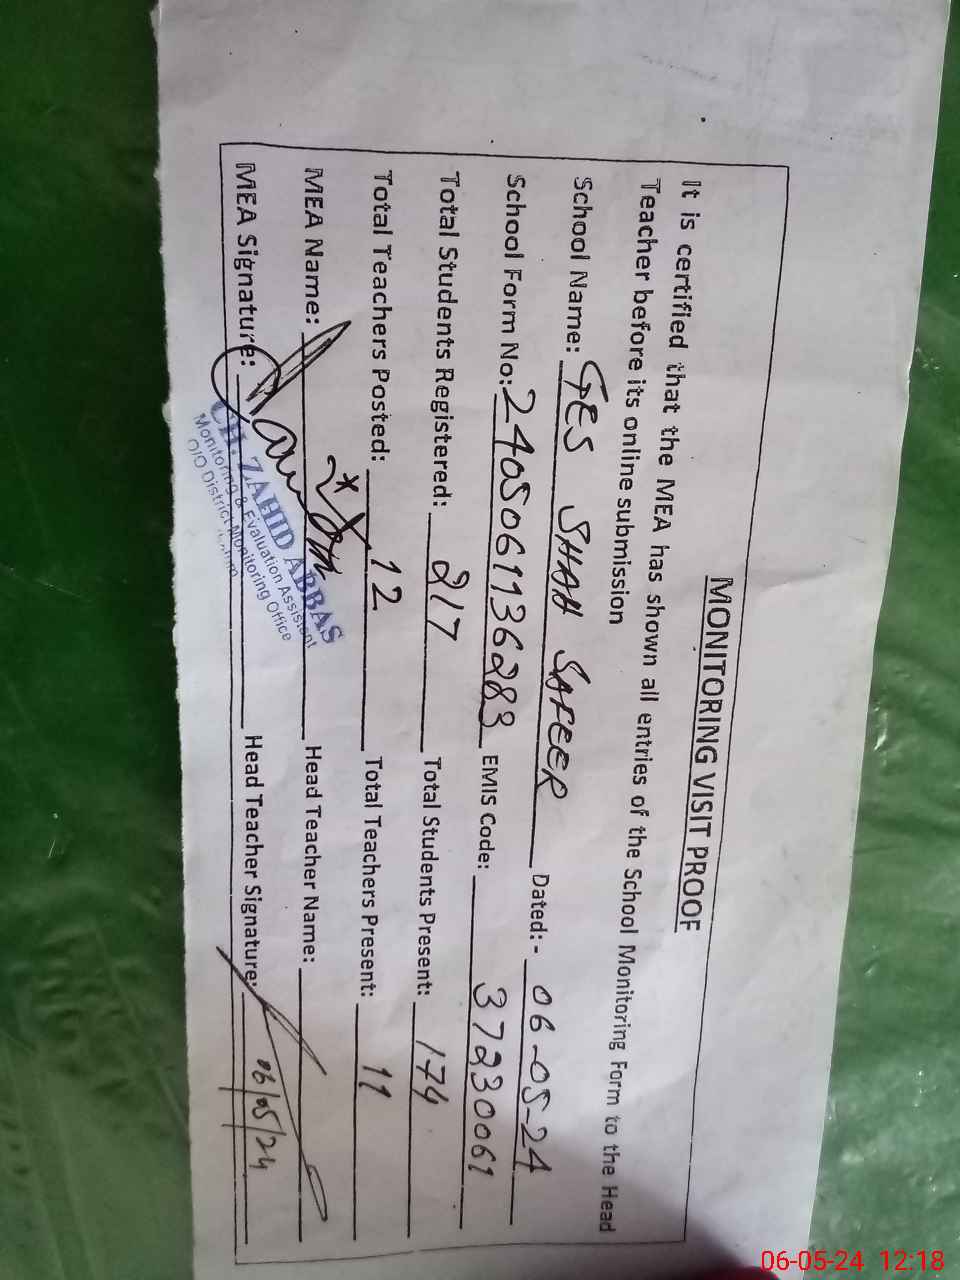 MONITORING VISIT PROOF
It is certified that the MEA has shown all entries of the School Monitoring Form to the Head
Teacher before its online submission
School Name: GES SHAH SAFEER Dated: - 06-05-24
School Form No: 2405061136283 EMIS Code: 37230061
Total Students Registered: 217 Total Students Present: 174
Total Teachers Posted: 12 Total Teachers Present: 11
MEA Name: Head Teacher Name:
MEA Signature: Head Teacher Signature: 06/05/24
CH. ZAHID ABBAS
Monitoring & Evaluation Assistant
O/O District Monitoring Office
06-05-24 12:18